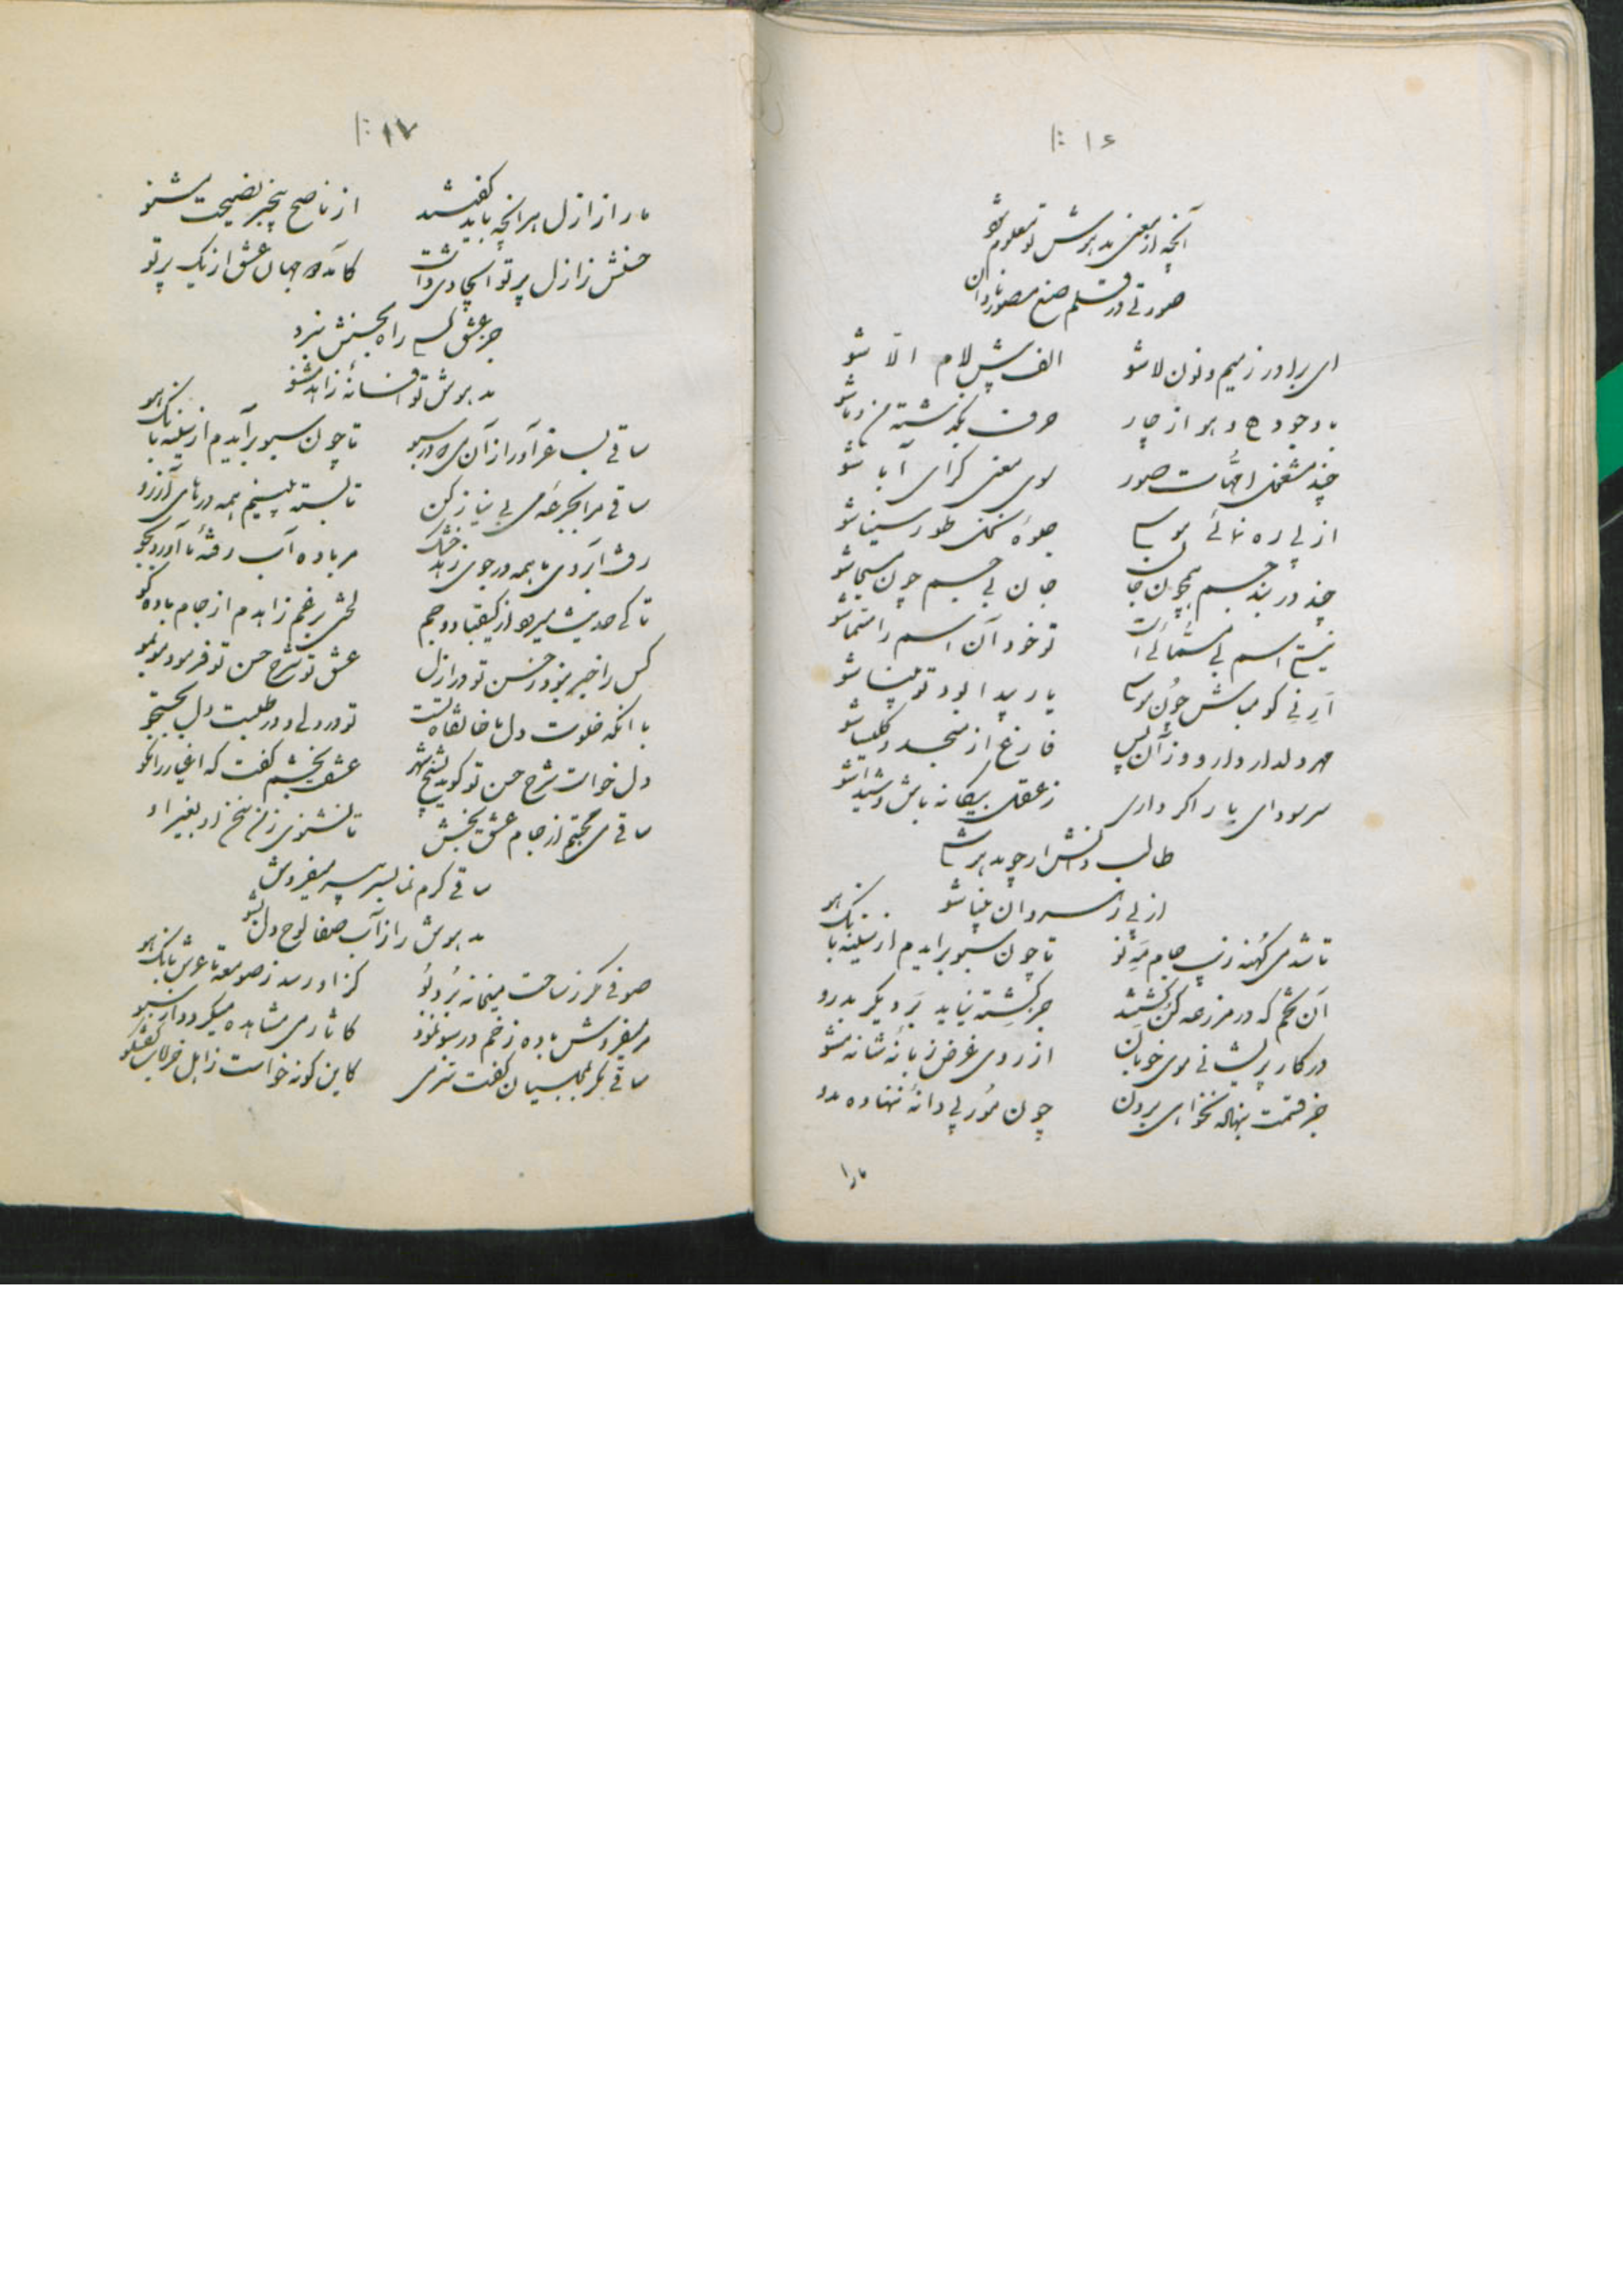 ۱۶
آنچه از معنی مدهوش تو معلوم شو
صورتی در قلم صنع مصور نادان
ای برادر ز میم و نون لا شو الف پیش لام الا شو
با وجود ج و هو از چار حرف
چند مشغول امهات صور سوی معنی گرای آبا شو
از پی ره نمائی موسی جلوه کن طور سینا شو
چند در بند جسم همچون جان بی جسم چون مسیحا شو
نیست اسم بی مسمائی است تو خود آن اسم را مسما شو
ارنی گو مباش چون موسی یار پیدا بود تو بینا شو
مهر دلدار دار و وز آن پس فارغ از مسجد و کلیسا شو
سر سودای یار اگر داری ز عقل بیگانه باش و شیدا شو
طالب دانش ار چو مدهوشی
از پی رهروان بینا شو
تا شد می کهنه زیب جام مه نو تا چون سبو برآیدم از سینه بانگ هو
آن تخم که در مزرعه کن کشتند جز کشته نیاید بر دیگر بدرو
در کار پریشانی موی خوبان از روی غرض زبانه شانه مشو
جز قسمت بنهاده نخواهی بردن چون مور پی دانه ننهاده مدو
ما را
۱۷
ما را ز ازل هر آنچه باید گفتند از ناصح بیخبر نصیحت مشنو
حسنش ز ازل پرتو ایجادی داشت کامد جهان عشق از یک پرتو
جز عشق کسی راه بحسنش نبرد
مدهوش تو افسانه زاهد مشنو
ساقی بساغر آور از آن می در سبو تا چون سبو برآیدم از سینه بانگ هو
ساقی مرا بجرعه می بی نیاز کن تا بسته بینیم همه درهای آرزو
رفت آبروی ما همه در جوی زهد خشک مر باده آب رفته ما آورد بجو
تا کی حدیث میرود از کیقباد و جم لختی برغم زاهدم از جام باده گو
کس را خبر نبود ز حسن تو در ازل عشق تو شرح حسن تو فرمود موبمو
با آنکه خلوت دل ما خانقاه تست تو در دلی و در طلبت دل بجستجو
دل خواست شرح حسن تو گوید بشیخ شهر عشق بخشم گفت که اغیار را مگو
ساقی می محبتم از جام عشق بخش تا نشنوی ز من سخن از او بغیر او
ساقی کرم نما بسر پیر میفروش
مدهوش را ز آب صفا لوح دل بشو
صوفی مگر ز ساحت میخانه برد بو کز او رسد ز صومعه تا عرش بانگ هو
میفروش باده ز خم در سبو نمود کاثار می مشاهده میگردد از سبو
ساقی مگر بمجلسیان گفت سر می کاین گونه خواست ز اهل خرابات گفتگو